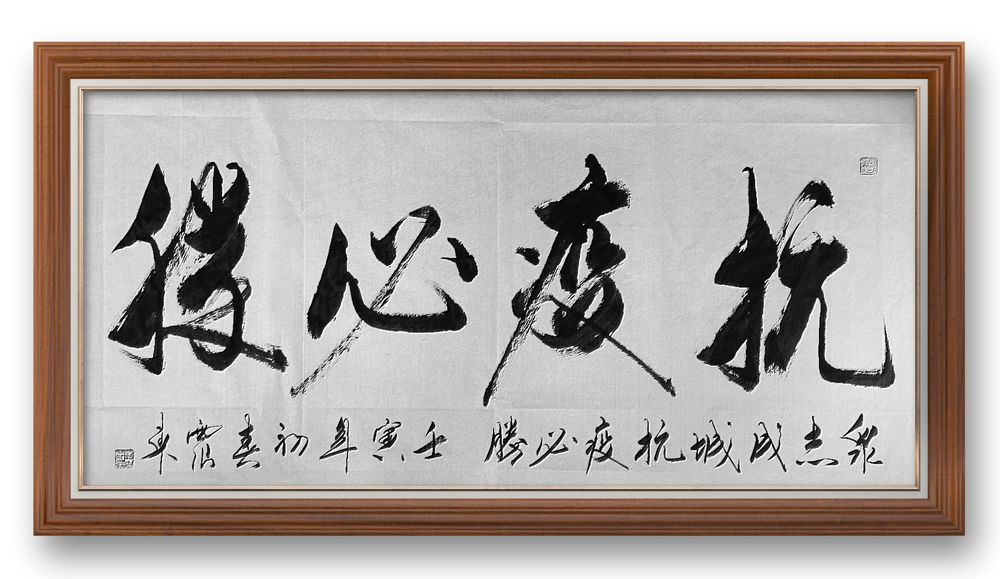 抗疫必勝
衆志成城抗疫必勝 壬寅年初春